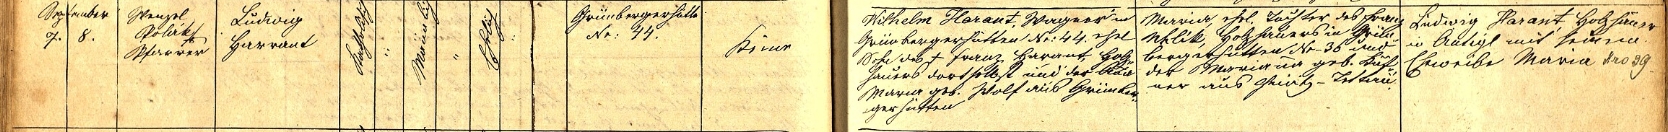 September
7. 8.
Wenzel
Pfarrer
Ludwig
Harrant
Katholisch
Männlich
Ehelich
Grünbergerhütte
No: 44
Keine
Wilhelm Harant, Wagner in
Grünbergerhütten No: 44. ehel.
Sohn des † Franz Harant, Holz-
hauers dortselbst und der
Maria geb. Wolf aus Grünber-
gerhütten
Maria, ehel. Tochter des Franz
Uhlik, Holzhauers in Grün-
bergerhütten No 36 und
der Marianna geb.
ner aus
Ludwig Harant, Holzhauer
in Antigl mit seinem
Eheweibe Maria Nro 39.